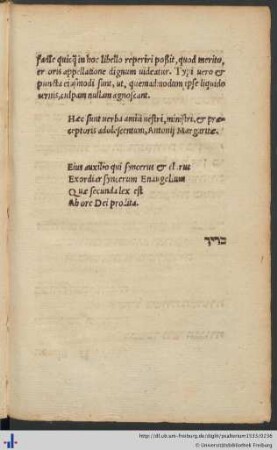 facile quicq̃ in hoc libello reperiri possit, quod merito,
er oris appellatione dignum uideatur. Typi uero &
puncta eiusmodi sunt, ut, quemadmodum ipse liquido
uideris, culpam nullam agnoscant.
Hæc sunt uerba amici nostri, ministri, & præ⸗
ceptoris adolescentum, Antonij Margaritæ.
Eius auxilio qui syncerus & clarus
Exordiar syncerum Euangelium
Quæ secunda lex est
Ab ore Dei prolita.
כריך
http://dl.ub.uni-freiburg.de/diglit/psalterium1533/0236
© Universitätsbibliothek Freiburg